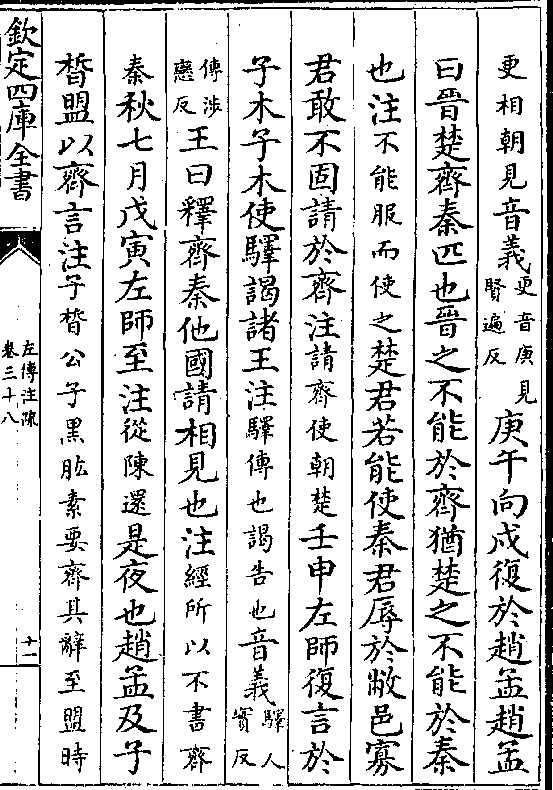 更相朝見音義更音庚見賢遍反庚午向戌復於趙孟趙孟
曰晉楚齊秦匹也晉之不能於齊猶楚之不能於秦
也注不能服而使之楚君若能使秦君辱於敝邑寡
君敢不固請於齊注請齊使朝楚壬申左師復言於
子木子木使驛謁諸王注驛傳也謁告也音義驛人實反
傳涉戀反王曰釋齊秦他國請相見也注經所以不書齊
秦秋七月戊寅左師至注從陳還是夜也趙孟及子
晳盟以齊言注子晳公子黑肱素要齊其辭至盟時
欽定四庫全書
左傳注疏
卷三十八
十一